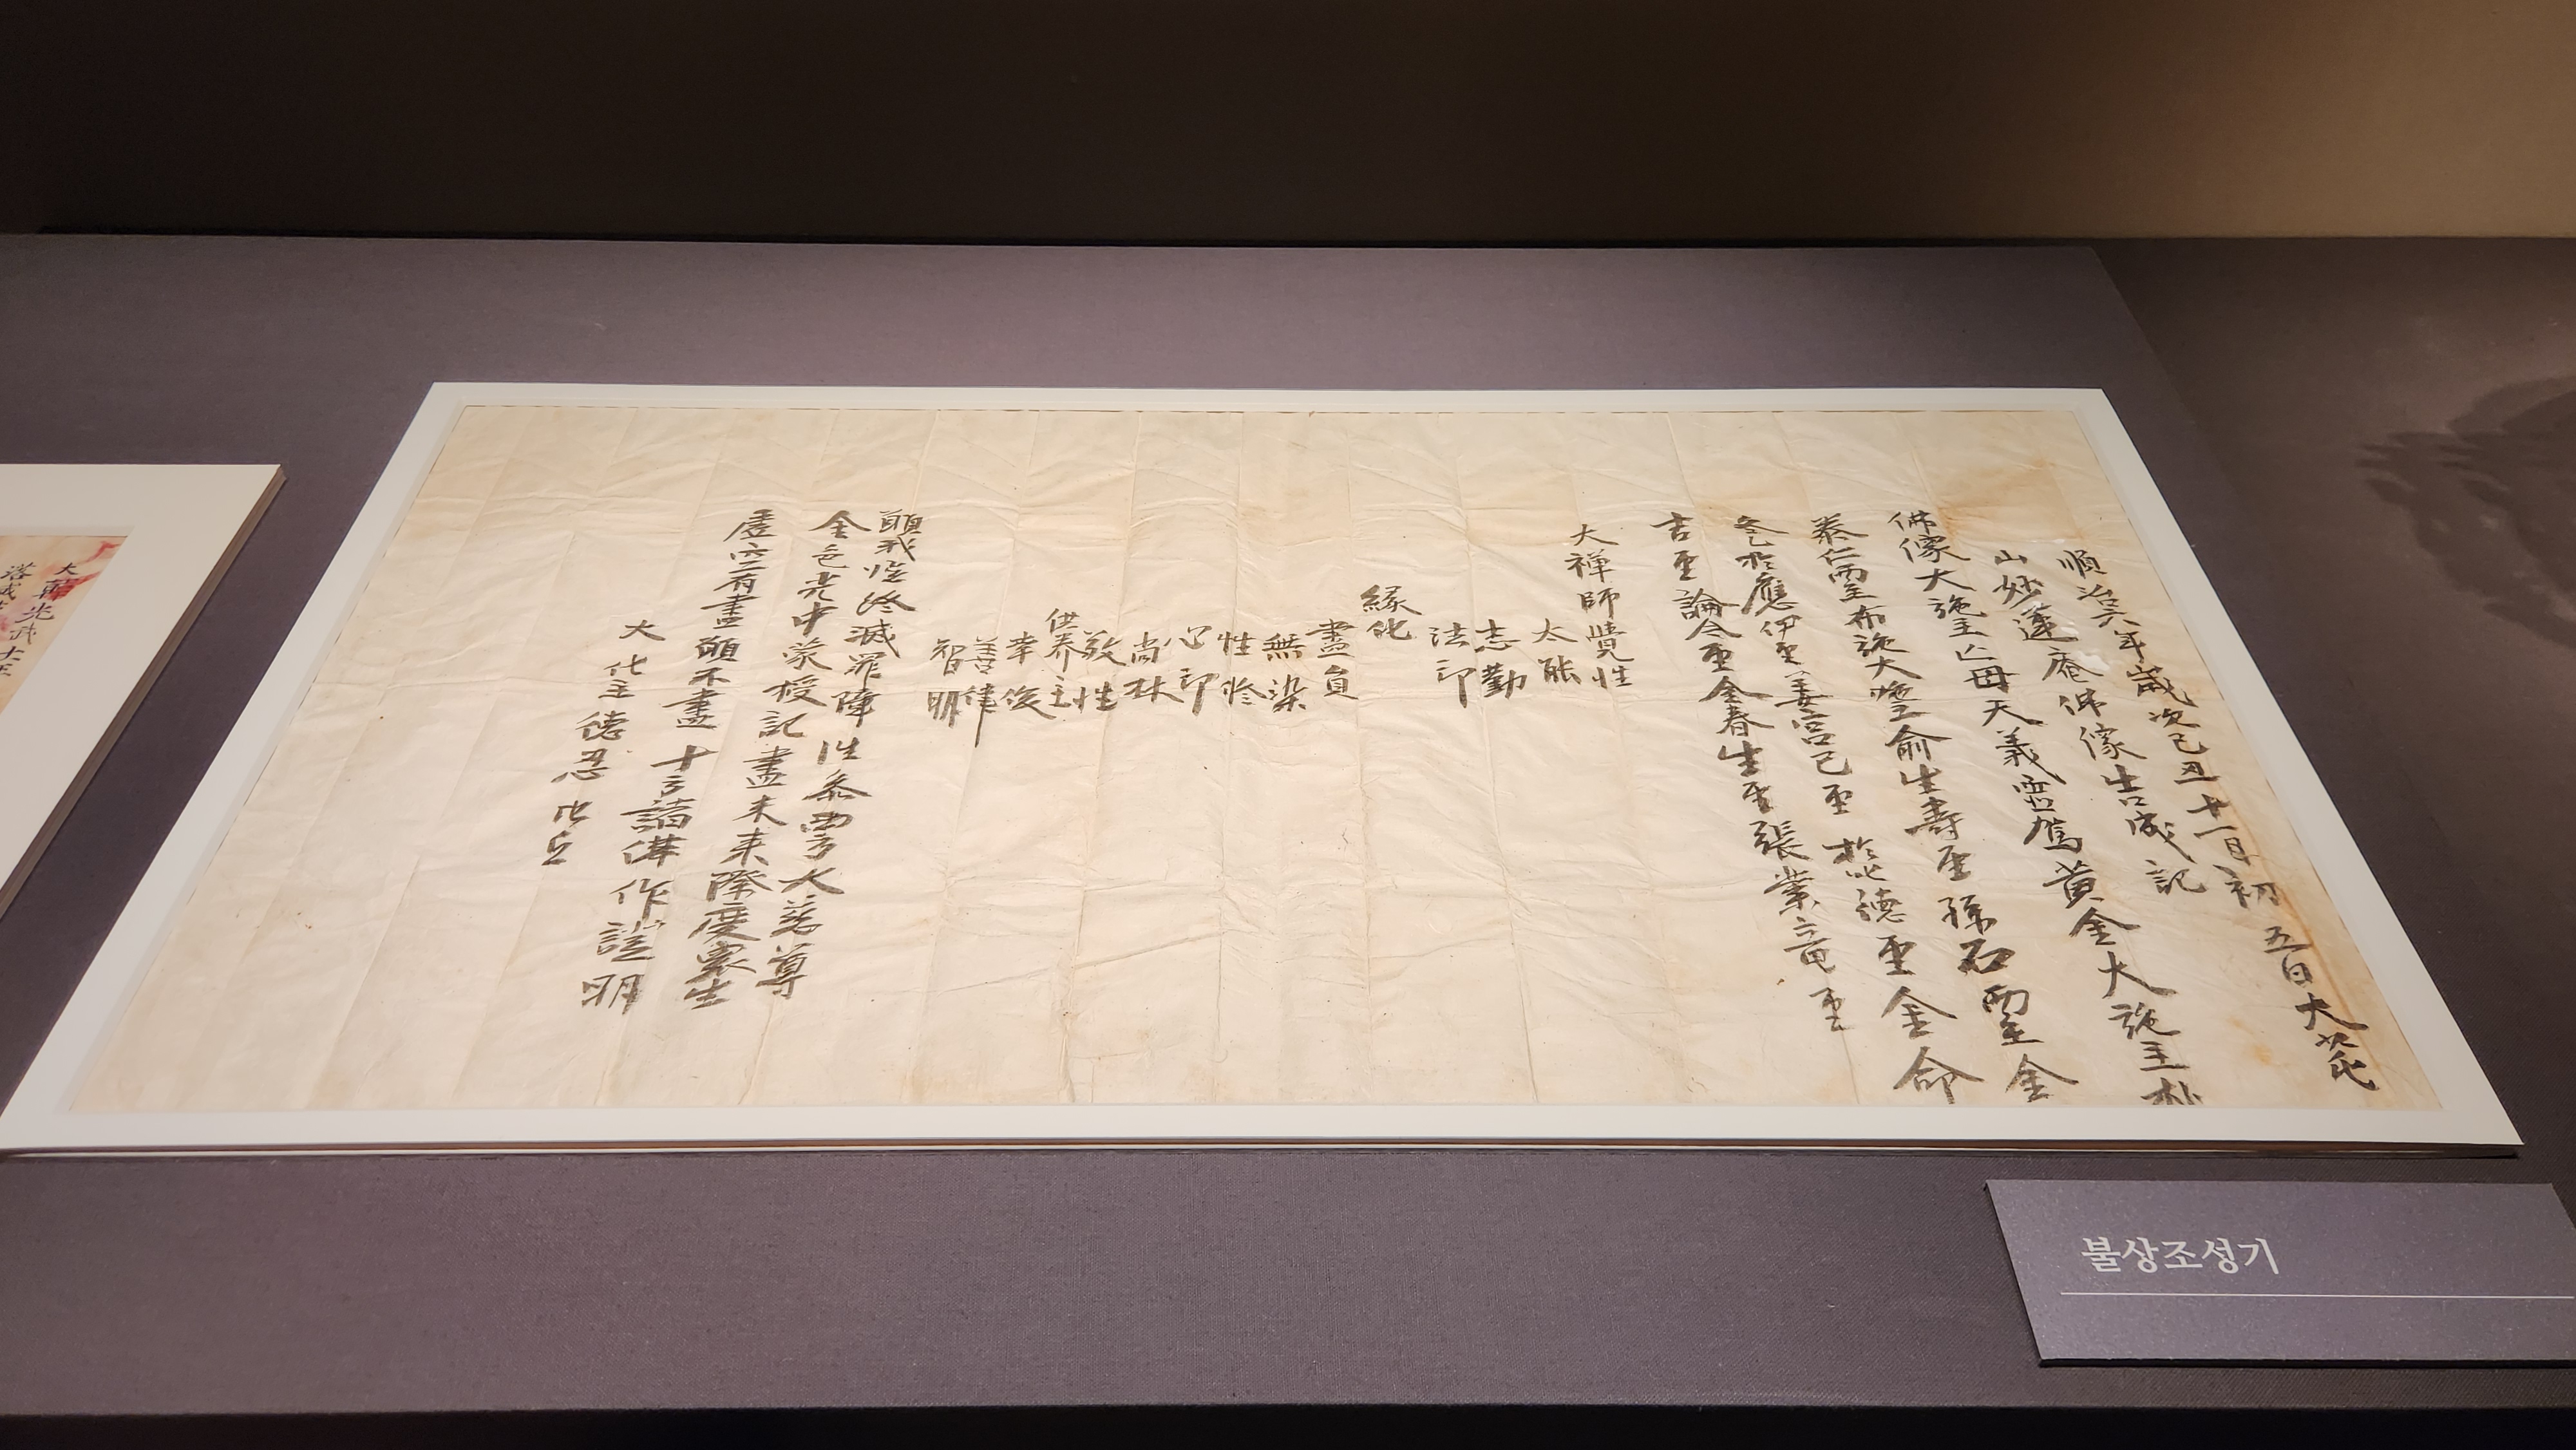 順治六年歲次己丑十一月初五日大芚
山妙蓮庵佛像造成記
佛像大施主亡母天義靈駕黃金大施主朴
泰仁兩主布施大施主俞生壽兩主孫石兩主金
冬於應伊兩主姜宮己兩主於比德兩主金命
吉兩主論今兩主金春生兩主張業竜兩主
大禪師覺性
太能
志勤
法印
緣化
畫員
無染
性修
心印
尚林
敬性
供养主
幸俊
善律
智明
願我臨終滅罪障往參西方大慈尊
金色光中蒙授記盡未來際度衆生
虛空有盡願不盡十方諸佛作證明
大化主德忍比丘
大韓光武
불상조성기